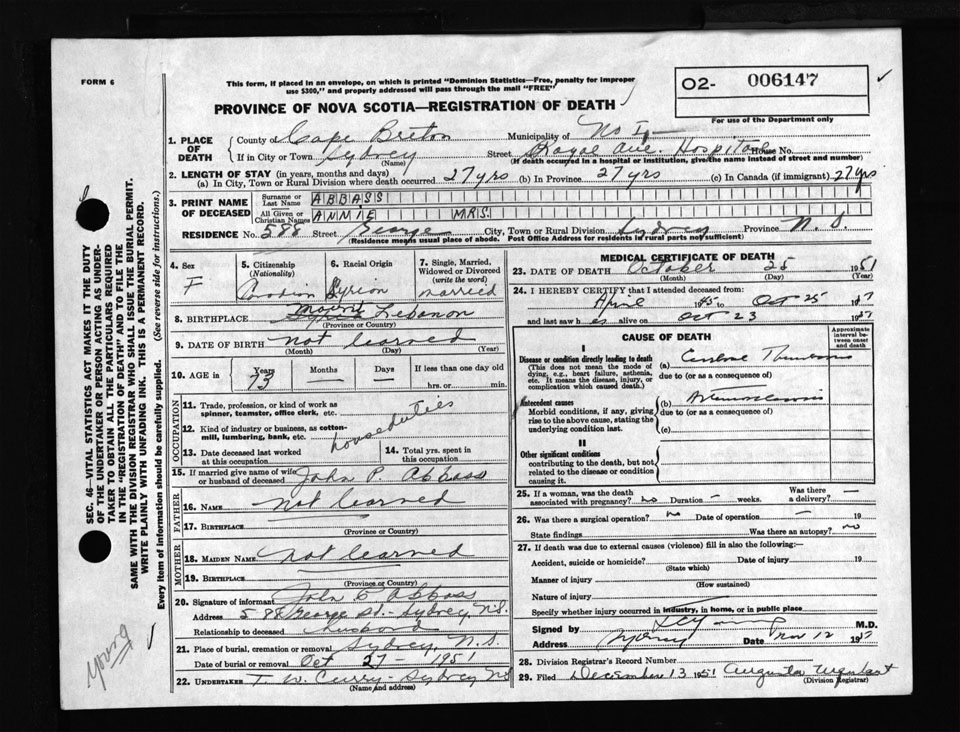 FORM 6
This form, if placed in an envelope, on which is printed "Dominion Statistics—Free, penalty for improper
use $300," and properly addressed will pass through the mail "FREE"
O2- 006147
For use of the Department only
PROVINCE OF NOVA SCOTIA—REGISTRATION OF DEATH
1. PLACE OF DEATH
County of Cape Breton Municipality of No 1
If in City or Town Sydney Street Royal Ave. Hospital House No.
(Name) (If death occurred in a hospital or institution, give the name instead of street and number)
2. LENGTH OF STAY (in years, months and days)
(a) In City, Town or Rural Division where death occurred 27 yrs (b) In Province 27 yrs (c) In Canada (if immigrant) 27 yrs
3. PRINT NAME OF DECEASED
Surname or Last Name ABBASS
All Given or Christian Names ANNIE MRS.
RESIDENCE No. 588 Street George City, Town or Rural Division Sydney Province N. S.
(Residence means usual place of abode. Post Office Address for residents in rural parts not sufficient)
4. Sex F
5. Citizenship (Nationality) Canadian
6. Racial Origin Syrian
7. Single, Married, Widowed or Divorced (write the word) married
8. BIRTHPLACE Mount Lebanon
(Province or Country)
9. DATE OF BIRTH not learned
(Month) (Day) (Year)
10. AGE in Years 73 Months — Days — If less than one day
hrs. or min.
OCCUPATION
11. Trade, profession, or kind of work as
spinner, teamster, office clerk, etc.
12. Kind of industry or business, as cotton-
mill, lumbering, bank, etc. houseduties
13. Date deceased last worked
at this occupation
14. Total yrs. spent in
this occupation
15. If married give name of wife
or husband of deceased John P. Abbass
FATHER
16. NAME not learned
17. BIRTHPLACE
(Province or Country)
MOTHER
18. MAIDEN NAME not learned
19. BIRTHPLACE
(Province or Country)
20. Signature of informant John Abbass
Address 588 George St. - Sydney, N.S.
Relationship to deceased husband
21. Place of burial, cremation or removal Sydney, N. S.
Date of burial or removal Oct 27 - 1951
22. UNDERTAKER T. W. Curry - Sydney NS
(Name and address)
MEDICAL CERTIFICATE OF DEATH
23. DATE OF DEATH October 25 1951
(Month) (Day) (Year)
24. I HEREBY CERTIFY that I attended deceased from:
April 1945 to Oct 25 19
and last saw her alive on Oct 23 19
CAUSE OF DEATH
Approximate interval between onset and death
I
Disease or condition directly leading to death
(This does not mean the mode of
dying, e.g., heart failure, asthenia,
etc. It means the disease, injury, or
complication which caused death.)
(a)
due to (or as a consequence of)
Antecedent causes
Morbid conditions, if any, giving
rise to the above cause, stating the
underlying condition last.
(b)
due to (or as a consequence of)
(c)
II
Other significant conditions
contributing to the death, but not
related to the disease or condition
causing it.
25. If a woman, was the death
associated with pregnancy? no Duration — weeks. Was there
a delivery? —
26. Was there a surgical operation? no Date of operation — 19
State findings Was there an autopsy? no
27. If death was due to external causes (violence) fill in also the following:-
Accident, suicide or homicide? Date of injury 19
(State which)
Manner of injury
(How sustained)
Nature of injury
Specify whether injury occurred in industry, in home, or in public place
Signed by M.D.
Address Sydney Date Nov 12 19
28. Division Registrar's Record Number
29. Filed December 13 1951 Augusta
(Division Registrar)
SEC. 46—VITAL STATISTICS ACT MAKES IT THE DUTY
OF THE UNDERTAKER OR PERSON ACTING AS UNDER-
TAKER TO OBTAIN ALL THE PARTICULARS REQUIRED
IN THE "REGISTRATION OF DEATH" AND TO FILE THE
SAME WITH THE DIVISION REGISTRAR WHO SHALL ISSUE THE BURIAL PERMIT.
WRITE PLAINLY WITH UNFADING INK. THIS IS A PERMANENT RECORD.
Every item of information should be carefully supplied. (See reverse side for instructions.)
Young